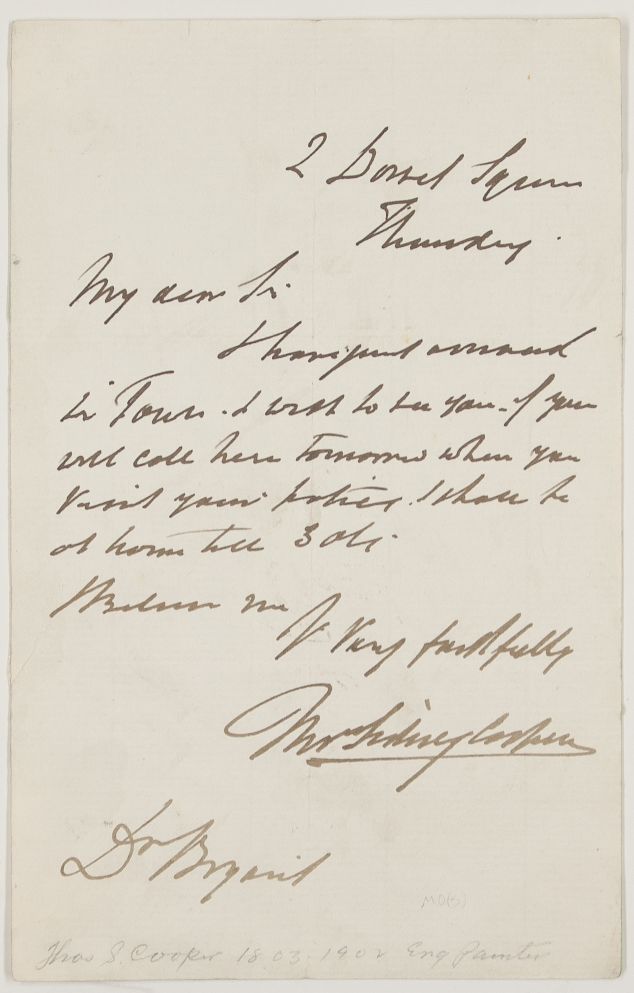 2 Dorset Square
Thursday.
My dear Sir
I have just arrived
in Town. I wish to see you - if you
will call here tomorrow when you
visit your I shall be
at home till 3 ock.
Believe me
Yr Very faithfully
Thos Sidney Cooper
Dr Bryant
MO(B)
Thos S. Cooper 1803-1902 Eng painter